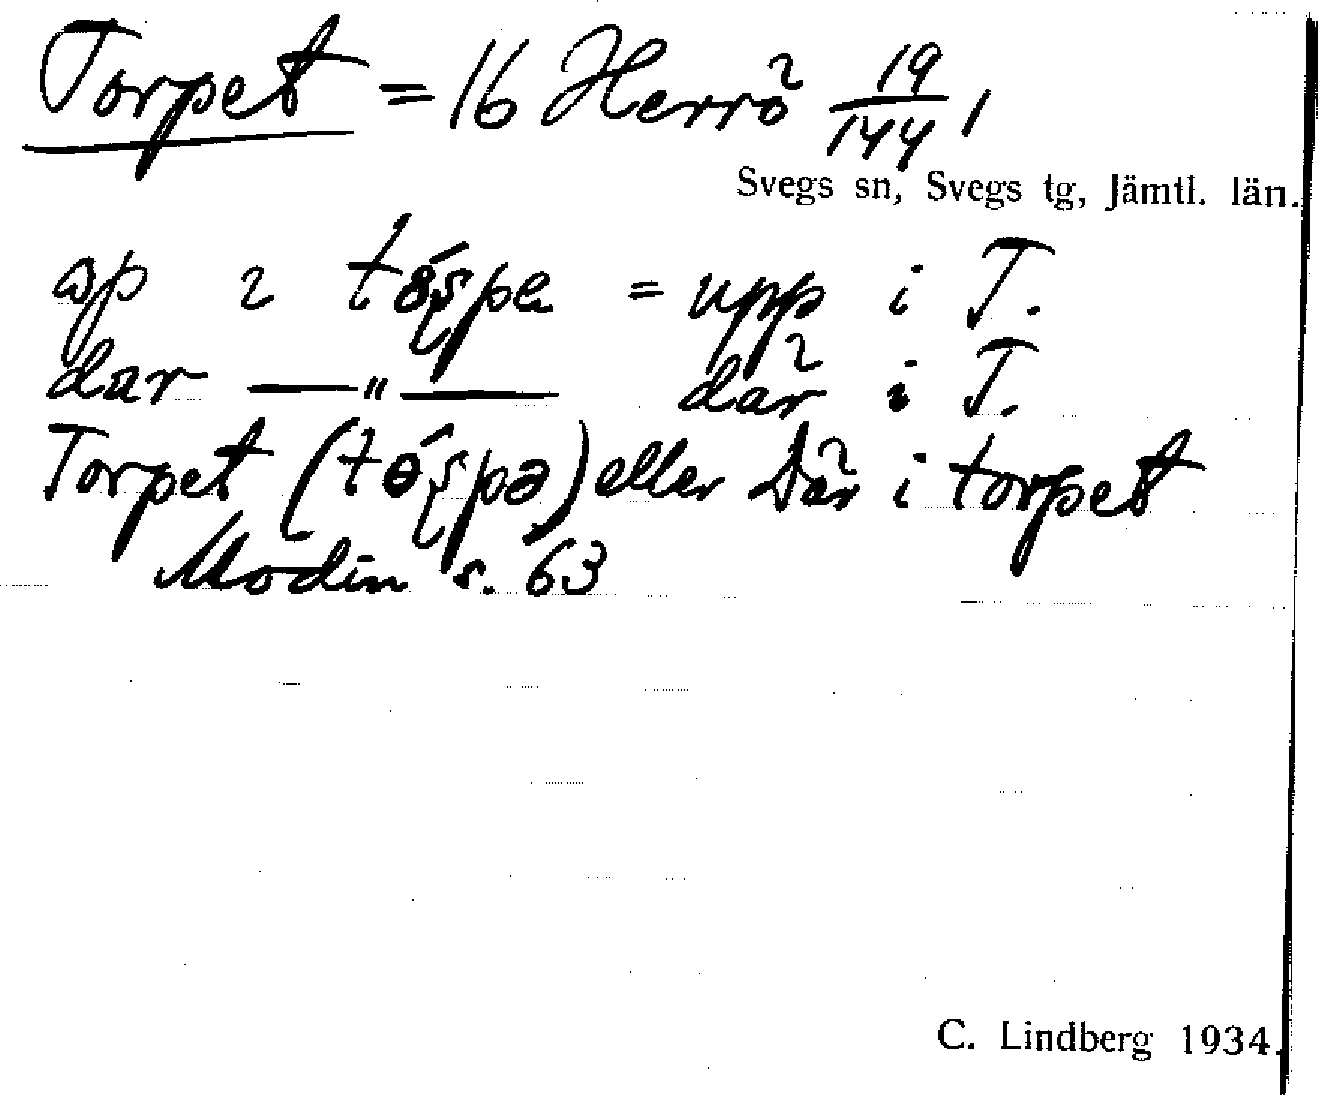 Torpet = 16 Herrö 19/144,
Svegs sn, Svegs tg, Jämtl. län.
tǿspa = upp i T.
dar —"— där i T.
Torpet (tǿspə) eller Där i torpet
Modin s. 63
C. Lindberg 1934.